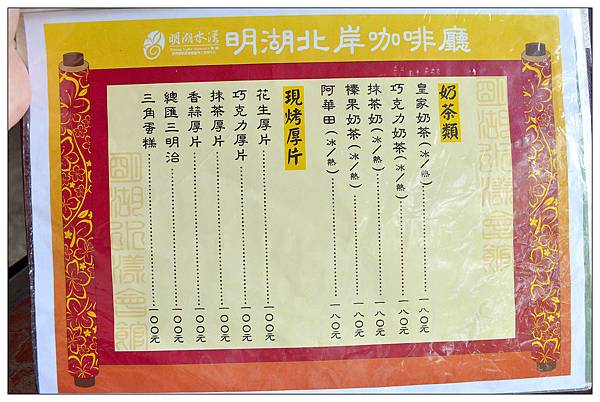 明湖水漾
明湖北岸咖啡廳
奶茶類
皇家奶茶(冰/熱)……一八○元
巧克力奶茶(冰/熱)……一八○元
抹茶奶(冰/熱)……一八○元
榛果奶茶(冰/熱)……一八○元
阿華田(冰/熱)……一八○元
現烤厚片
花生厚片……一○○元
巧克力厚片……一○○元
抹茶厚片……一○○元
香蒜厚片……一○○元
總匯三明治……一○○元
三角蛋糕……一○○元
明湖水漾會館
明湖水漾會館